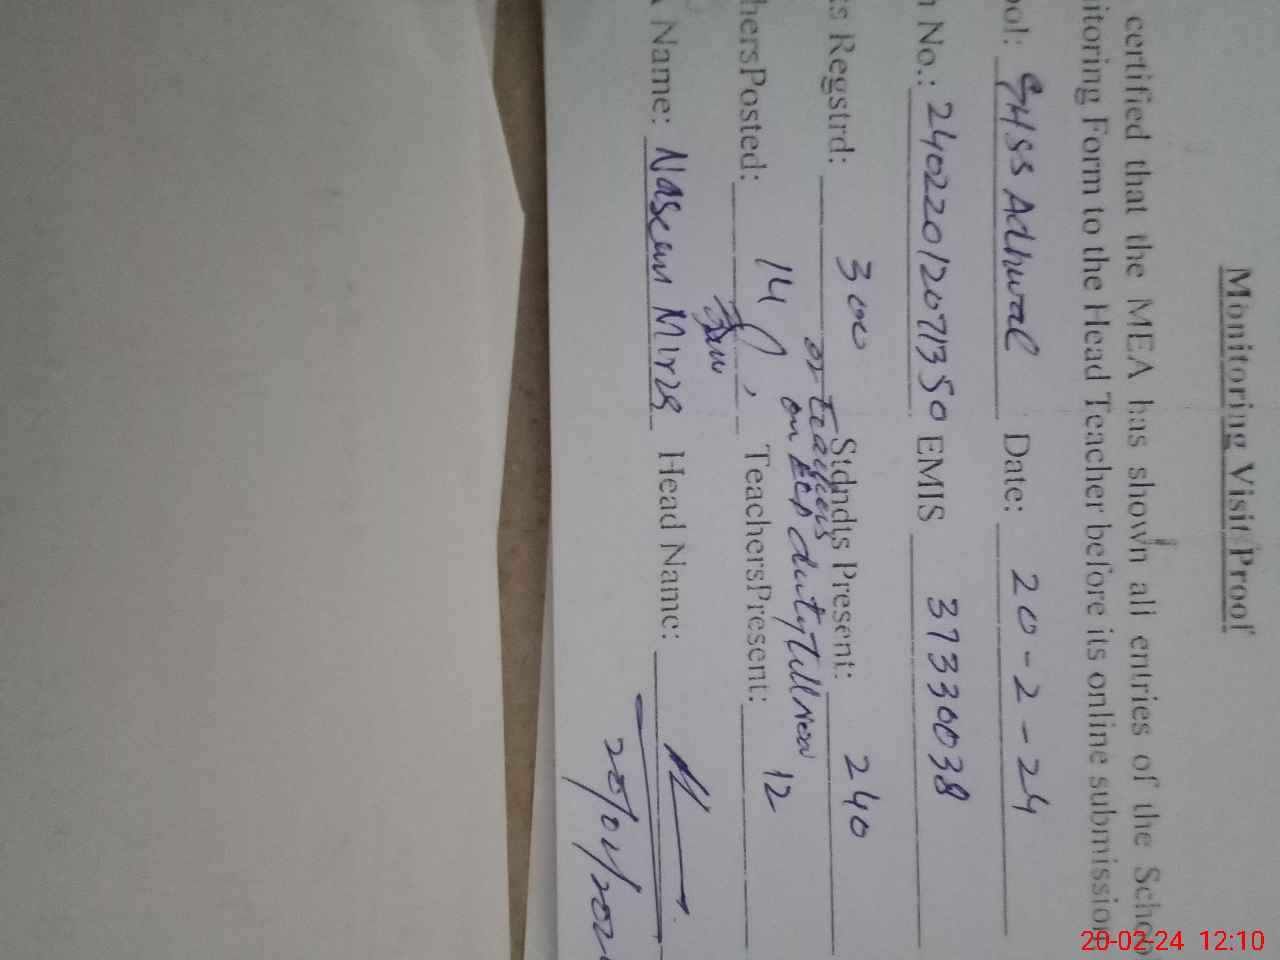 Monitoring Visit Proof
certified that the MEA has shown all entries of the School
itoring Form to the Head Teacher before its online submission
ool: GHSS Adhwal Date: 20-2-24
n No.: 24022012071350 EMIS 37330038
ts Regstrd: 300 Stdndts Present: 240
on ECP duty till now
hersPosted: 14 TeachersPresent: 12
Name: Naseem Mirza Head Name:
20-02-24 12:10